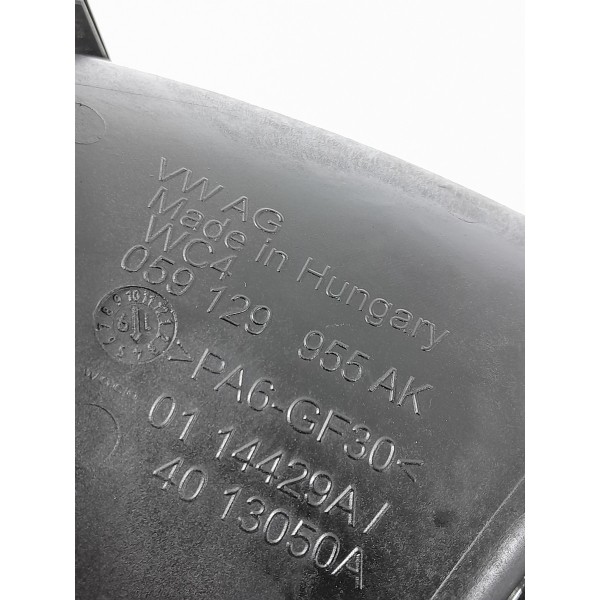 VW AG
Made in Hungary
WC4
059 129 955 AK
>PA6-GF30<
01 14429A /
40 13050A